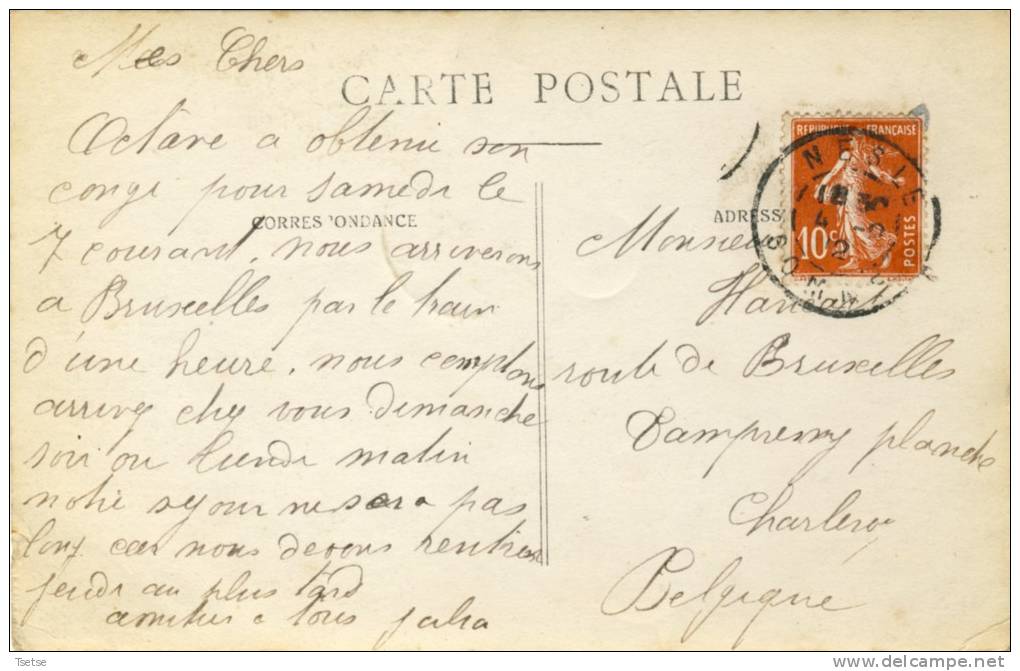 Mes Chers
CARTE POSTALE
Octave a obtenu son
congé pour samedi le
CORRESPONDANCE
7 courant, nous arriverons
a Bruxelles par le train
d'une heure, nous comptons
arrivez chez vous dimanche
soir ou lundi matin
notre sejour ne sera pas
long car nous devons rentrer
jeudi au plus tard
amities a tous
REPUBLIQUE FRANÇAISE
10c POSTES
NESLE
SOMME
ADRESS
Monsieur
route de Bruxelles
Dampremy planche
Charleroy
Belgique
Tsetse
delcampe.net